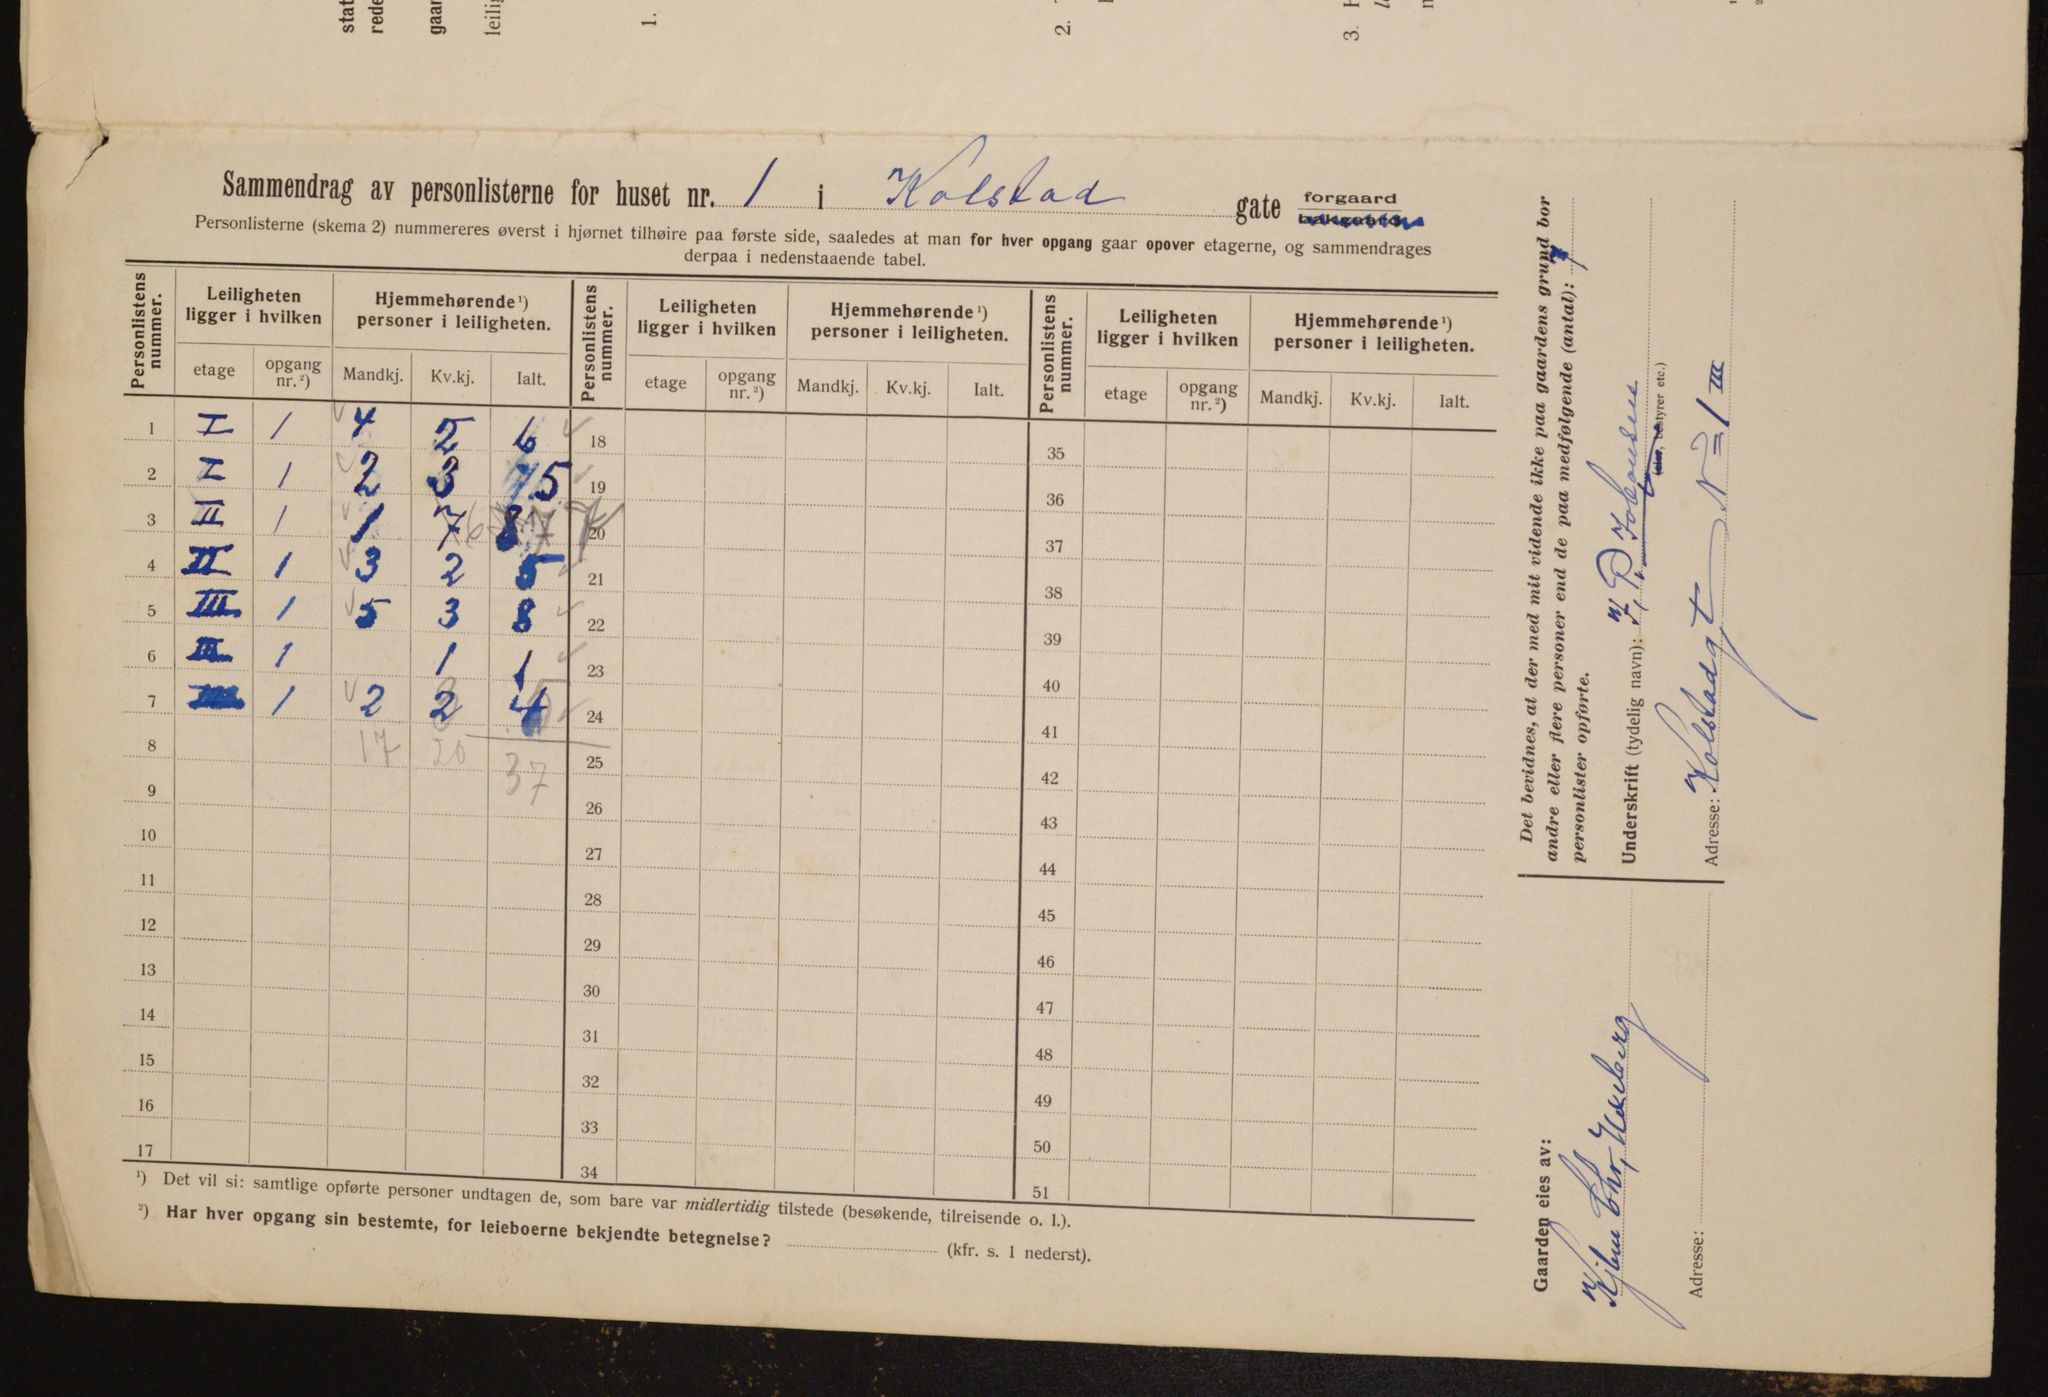 stat
rede
gaar
leilig
1.
2.
3.
Sammendrag av personlisterne for huset nr. 1 i Kolstad gate forgaard bakgaard
Personlisterne (skema 2) nummereres øverst i hjørnet tilhøire paa første side, saaledes at man for hver opgang gaar opover etagerne, og sammendrages
derpaa i nedenstaaende tabel.
Personlistens nummer. Leiligheten ligger i hvilken Hjemmehørende ¹) personer i leiligheten. Personlistens nummer. Leiligheten ligger i hvilken Hjemmehørende ¹) personer i leiligheten. Personlistens nummer. Leiligheten ligger i hvilken Hjemmehørende ¹) personer i leiligheten.
etage opgang nr. ²) Mandkj. Kv.kj. Ialt. etage opgang nr. ²) Mandkj. Kv.kj. Ialt. etage opgang nr. ²) Mandkj. Kv.kj. Ialt.
1 I 1 4 2 6 18 35
2 I 1 2 3 5 19 36
3 II 1 1 7 8 7 20 37
4 II 1 3 2 5 21 38
5 III 1 5 3 8 22 39
6 III 1 1 1 23 40
7 1 2 2 4 24 41
8 17 20 37 25 42
9 26 43
10 27 44
11 28 45
12 29 46
13 30 47
14 31 48
15 32 49
16 33 50
17 34 51
¹) Det vil si: samtlige opførte personer undtagen de, som bare var midlertidig tilstede (besøkende, tilreisende o. l.).
²) Har hver opgang sin bestemte, for leieboerne bekjendte betegnelse? (kfr. s. 1 nederst).
Det bevidnes, at der med mit vidende ikke paa gaardens grund bor
andre eller flere personer end de paa medfølgende (antal): 7
personlister opførte.
Underskrift (tydelig navn): Johansen
(eier, bestyrer etc.)
Adresse: Kolstadgt No 1 III
Gaarden eies av:
Chr.
Adresse: